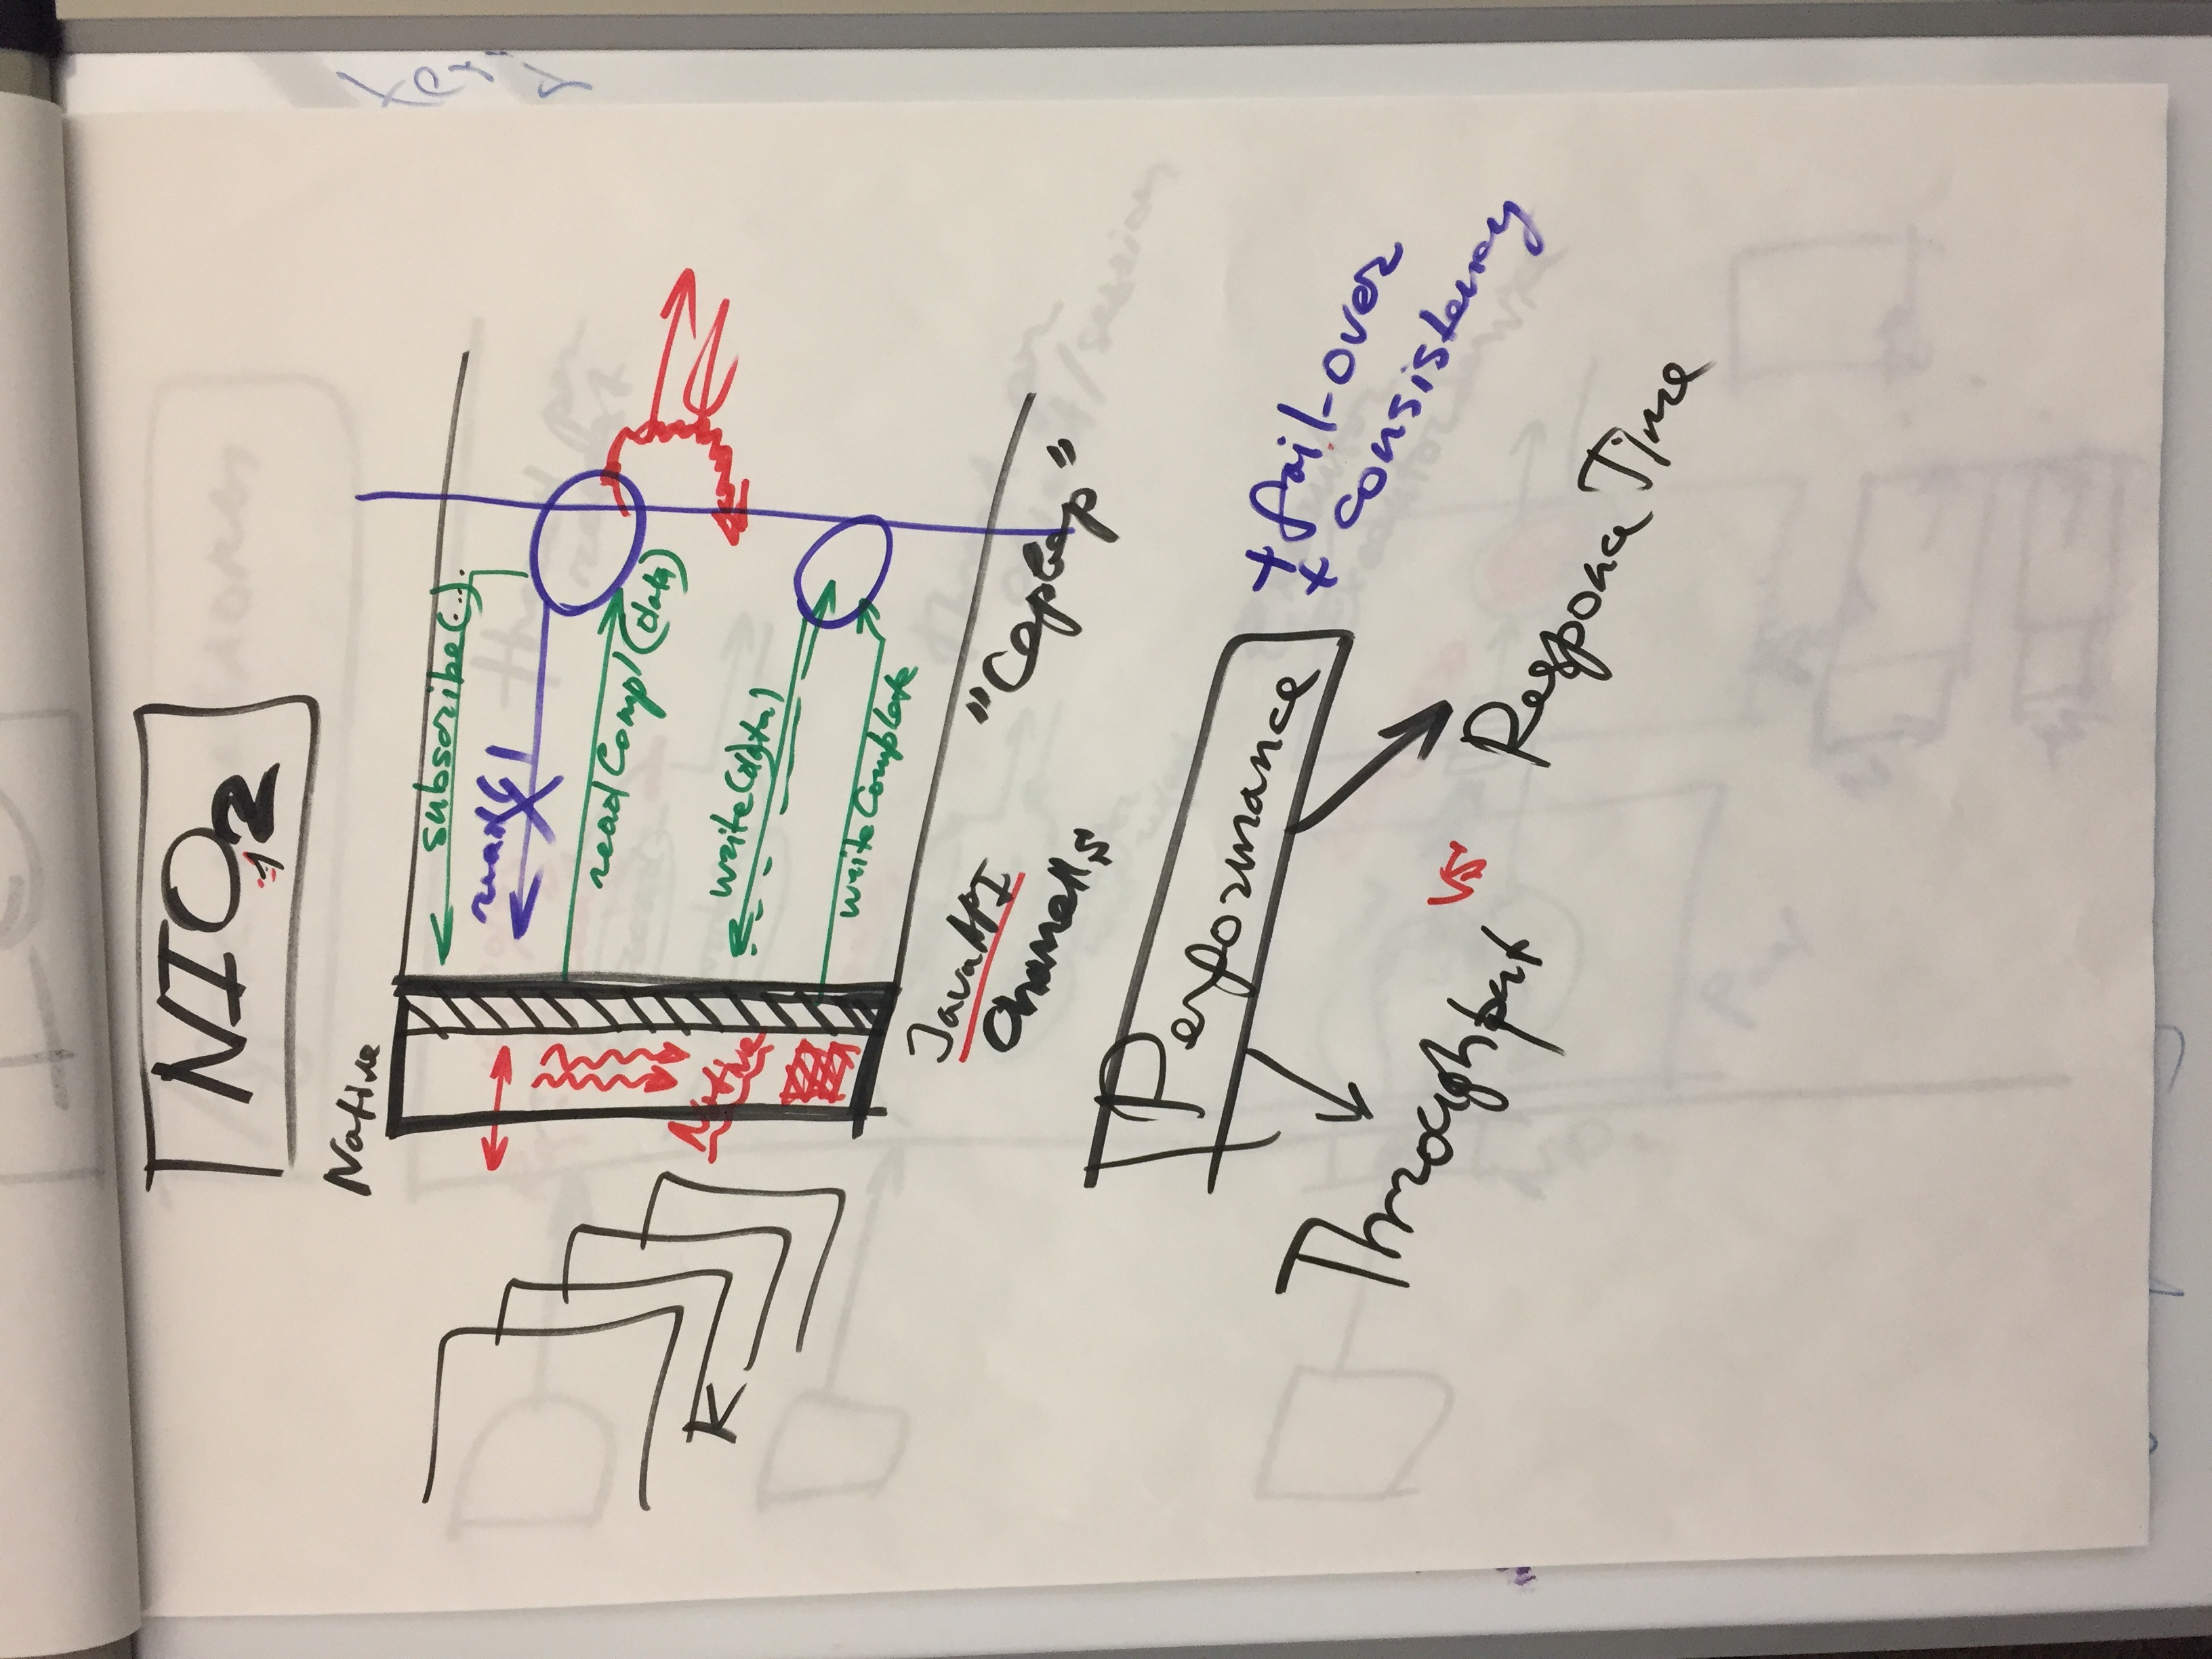 NIO2
.1
Native
subscribe(...)
read()
readCompl(data)
K
Native
write(data)
writeComplete
Java API
Channells
"Сервер"
Performance
+ fail-over
+ consistency
Throughput
vs
Response Time